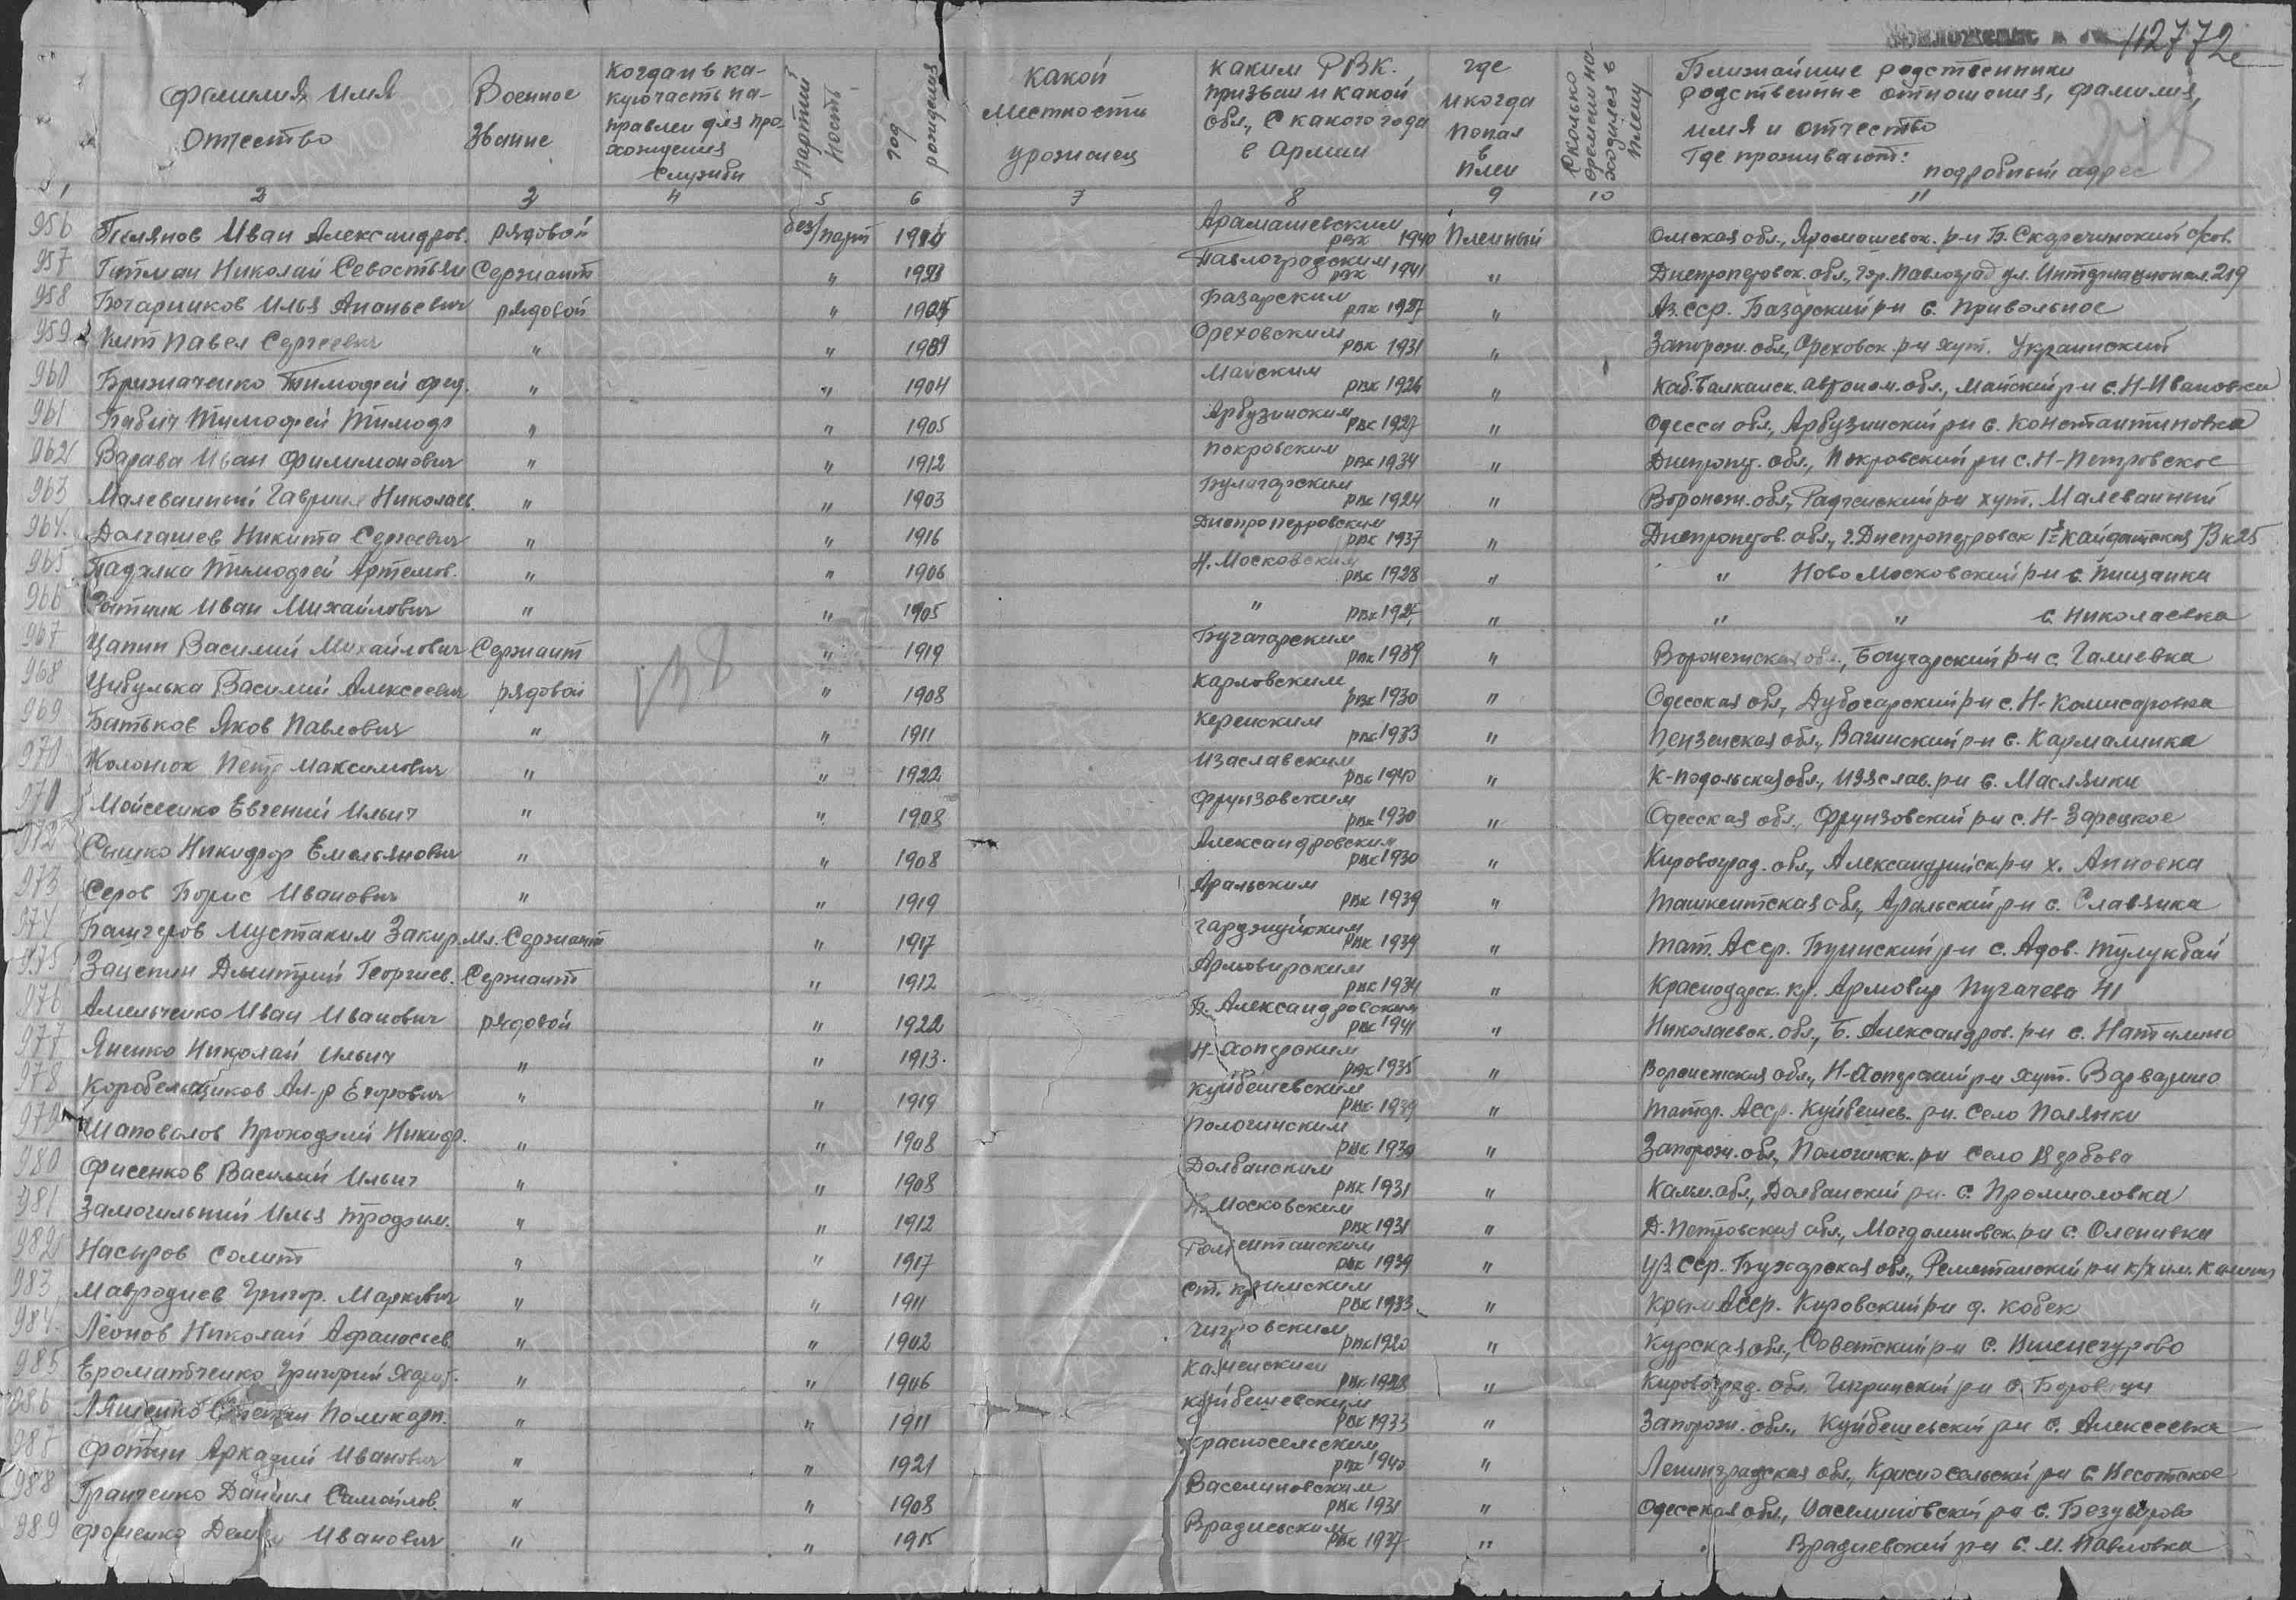 112772с
фамилия имя отчество
Военное звание
Когда и в какую часть направлен для прохождения службы
партийность
год рождения
какой местности урожинец
каким РВК. призван и какой обл., с какого года в Армии
где и когда попал в плен
Сколько времени находился в плену
Ближайшие родственники родственные отношения, фамилия, имя и отчество Где проживают: подробный адрес
1 2 3 4 5 6 7 8 9 10 11
956 Иван Александров. рядовой без/парт РВК 1940 Пленный Омская обл.,
957 Гитман Николай Севостьян Сержант " 1923 Павлоградским РВК 1941 " Днепропетровск. обл., гор. Павлоград ул. Интернационал. 219
958 Бочарников Илья Ананьевич рядовой " Базарским РВК 1927 " Аз. сср. Базарский р-н с. Привольное
959 Кит Павел Сергеевич " " 1909 Ореховским РВК 1931 " Запорож. обл., Ореховск. р-н хут. Украинский
960 Тимофей Фед. " " 1904 Майским РВК 1926 " Каб. Балкамск. автоном. обл., Майский р-н с. Н-Ивановка
961 Бабич Тимофей Тимоф " " 1905 Арбузинским РВК 1927 " Одесса обл., Арбузинский р-н с. Константиновка
962 Варава Иван Филимонович " " 1912 Покровским РВК 1934 " Днепропет. обл., Покровский р-н с. Н-Петровское
963 Малеванный Гавриил Николаев. " " 1903 РВК 1924 " Воронеж. обл., Радченский р-н хут. Малеванный
964. Долгашев Никита Сергеевич " " 1916 Днепропетровским РВК 1937 " Днепропетров. обл., г. Днепропетровск
965 Падалка Тимофей Артемов. " " 1906 Н. Московским РВК 1928 " " Ново Московский р-н с. Пищанка
966 Иван Михайлович " " 1905 " РВК 1927 " " " с. Николаевка
967 Цапин Василий Михайлович Сержант " 1919 РВК 1939 " Воронежская обл., Богучарский р-н с. Галиевка
968 Цибулька Василий Алексеевич рядовой " 1908 Карловским РВК 1930 " Одесская обл., Дубосарский р-н с. Н-Комисаровка
969 Батьков Яков Павлович " " 1911 Керенским РВК 1933 " Пензенская обл., р-н с. Кармалинка
970 Колонюк Петр Максимович " " 1922 Изаславским РВК 1940 " К-Подольская обл., Изяслав. р-н с. Маслянки
971 Мойсеенко Евгений Ильич " " 1908 Фрунзовским РВК 1930 " Одесская обл., Фрунзовский р-н с. Н-Зарецкое
972 Никифор Емельянович " " 1908 Александровским РВК 1930 " Кировоград. обл., Александрийск. р-н х. Анновка
973 Серов Борис Иванович " " 1919 Аральским РВК 1939 " Ташкентская обл., Аральский р-н с. Славянка
974 Мустаким Закир. мл. Сержант " 1917 РВК 1939 " Тат. Асср. Буинский р-н с.
975 Зацепин Дмитрий Георгиев. Сержант " 1912 Армовирским РВК 1934 " Краснодарск. кр. Армовир Пугачева 41
976 Амельченко Иван Иванович рядовой " 1922 Б. Александровским РВК 1941 " Николаевск. обл., Б. Александров. р-н с. Наталино
977 Яненко Николай Ильич " " 1913. Н-Хоперским РВК 1935 " Воронежская обл., Н-Хоперский р-н хут. Варварино
978 Коробельщиков Ал-р Егорович " " 1919 Куйбешевским РВК 1939 " Татар. Асср. Куйбешев. р-н. село Полянки
979 Шаповалов Прокофий Никиф. " " 1908 Пологинским РВК 1930 " Запорож. обл., Пологинск. р-н село Вербова
980 Фисенков Василий Ильич " " 1908 Долбанским РВК 1931 " Калм. обл., Долбанский р-н. с. Промысловка
981 Замогильний Илья Трофим. " " 1912 Н. Московским РВК 1931 " Д-Петровская обл., Магдалиновск. р-н с. Оленивка
982 Насыров Солит " " 1917 РВК 1939 " Уз. сср. Бухарская обл., р-н к/х им. Калинин
983 Мавродиев Григор. Маркович " " 1911 Ст. Кримским РВК 1933 " Крым Асср. Кировский р-н д. Кобек
984. Леонов Николай Афанасьев. " " 1902 РВК 1920 " Курская обл., Советский р-н с.
985 Григорий " " 1906 Каменским РВК 1928 " Кировоград. обл. р-н с. Боровици
986 Ляшенко Поликарп. " " 1911 Куйбешевским РВК 1933 " Запорож. обл., Куйбешевский р-н с. Алексеевка
987 Фотин Аркадий Иванович " " 1921 Красносельским РВК 1940 " Ленинградская обл., Красносельский р-н с.
988 Гранченко Даниил Самойлов. " " 1908 Васелиновским РВК 1931 " Одесская обл., Васелиновский р-н с. Безуверово
989 Фоменко Демян Иванович " " 1915 Врадиевским РВК 1937 " " Врадиевский р-н с. М. Павловка